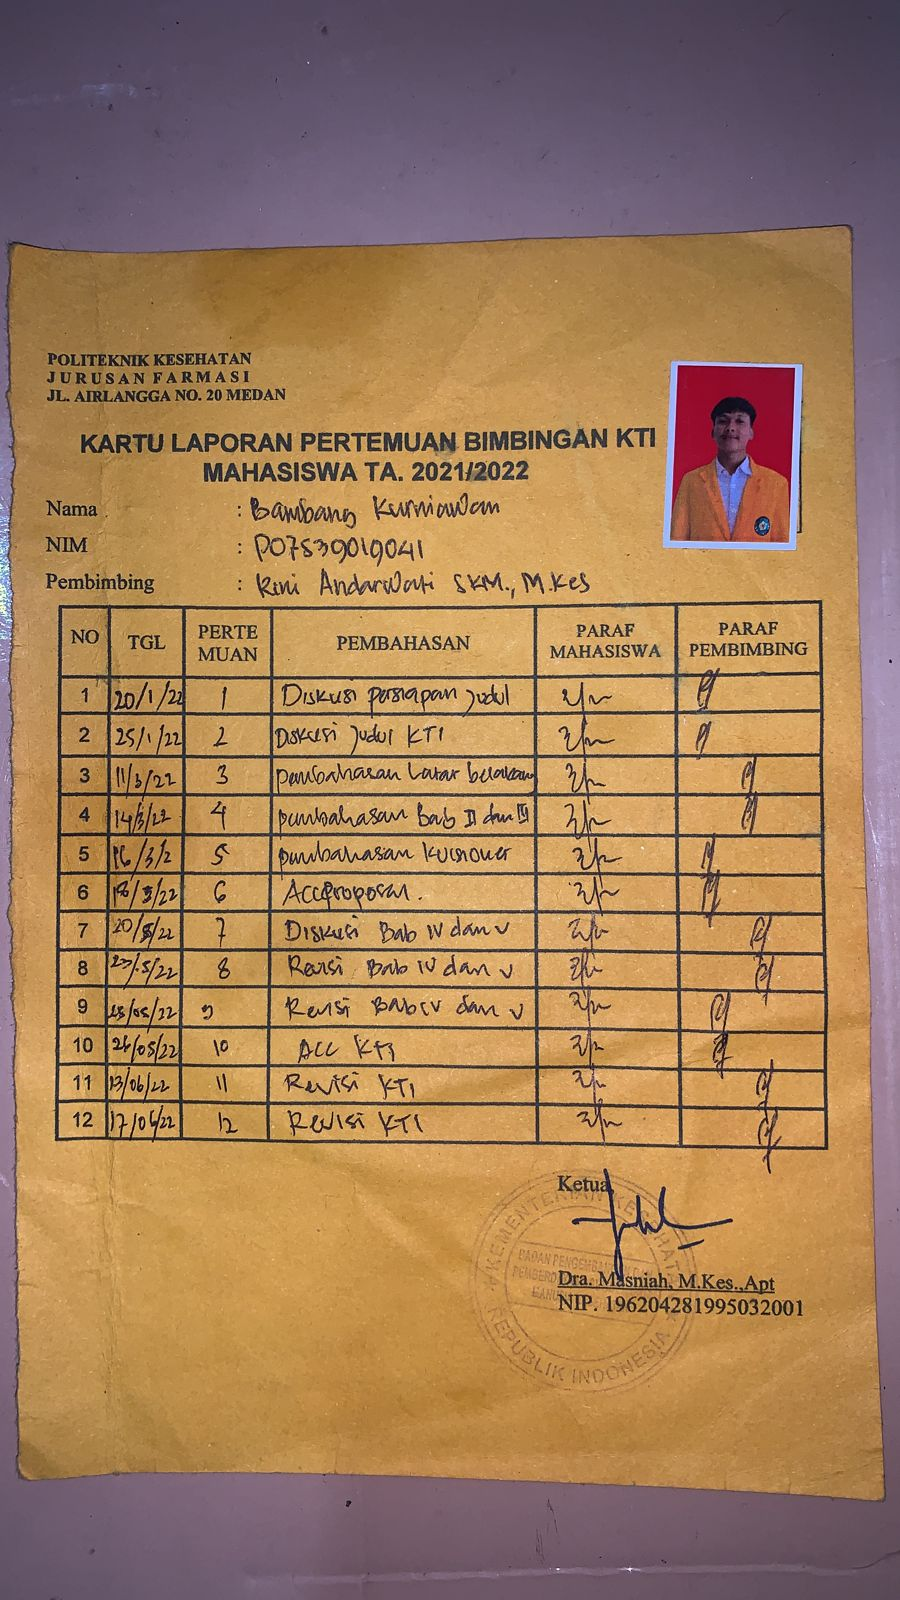 POLITEKNIK KESEHATAN
JURUSAN FARMASI
JL. AIRLANGGA NO. 20 MEDAN
KARTU LAPORAN PERTEMUAN BIMBINGAN KTI
MAHASISWA TA. 2021/2022
Nama : Bambang Kurniawan
NIM : P07539019041
Pembimbing : Rini Andarwati SKM., M.Kes
NO TGL PERTE MUAN PEMBAHASAN PARAF MAHASISWA PARAF PEMBIMBING
1 20/1/22 1 Diskusi persiapan judul
2 25/1/22 2 Diskusi judul KTI
3 11/3/22 3 pembahasan Latar belakang
4 14/3/22 4 pembahasan Bab II dan III
5 16/3/2 5 pembahasan Kuesioner
6 18/3/22 6 Acc proposal.
7 20/5/22 7 Diskusi Bab IV dan V
8 23/5/22 8 Revisi Bab IV dan V
9 25/05/22 9 Revisi Bab IV dan V
10 26/05/22 10 ACC KTI
11 13/06/22 11 Revisi KTI
12 17/06/22 12 Revisi KTI
Ketua,
KEMENTERIAN KESEHATAN
REPUBLIK INDONESIA
BADAN
Dra. Masniah, M.Kes.,Apt
NIP. 196204281995032001